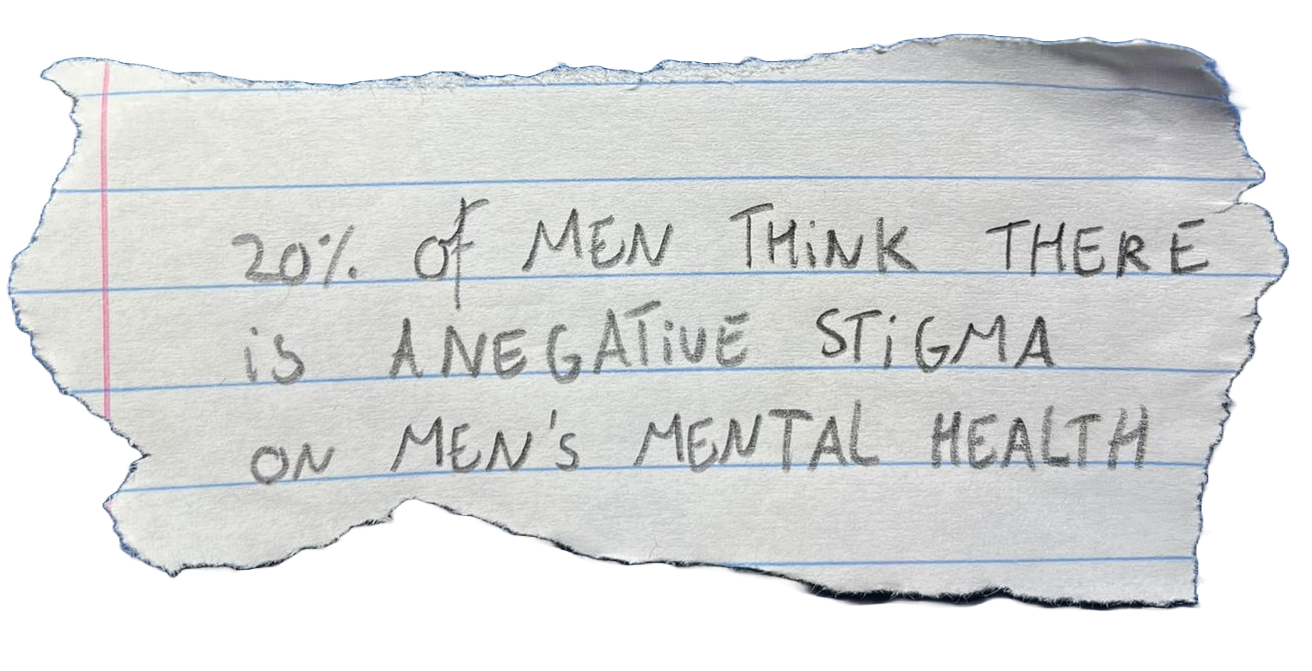 20% of MEN THiNK THERE
is A NEGATiVE STiGMA
ON MEN's MENTAL HEALTH